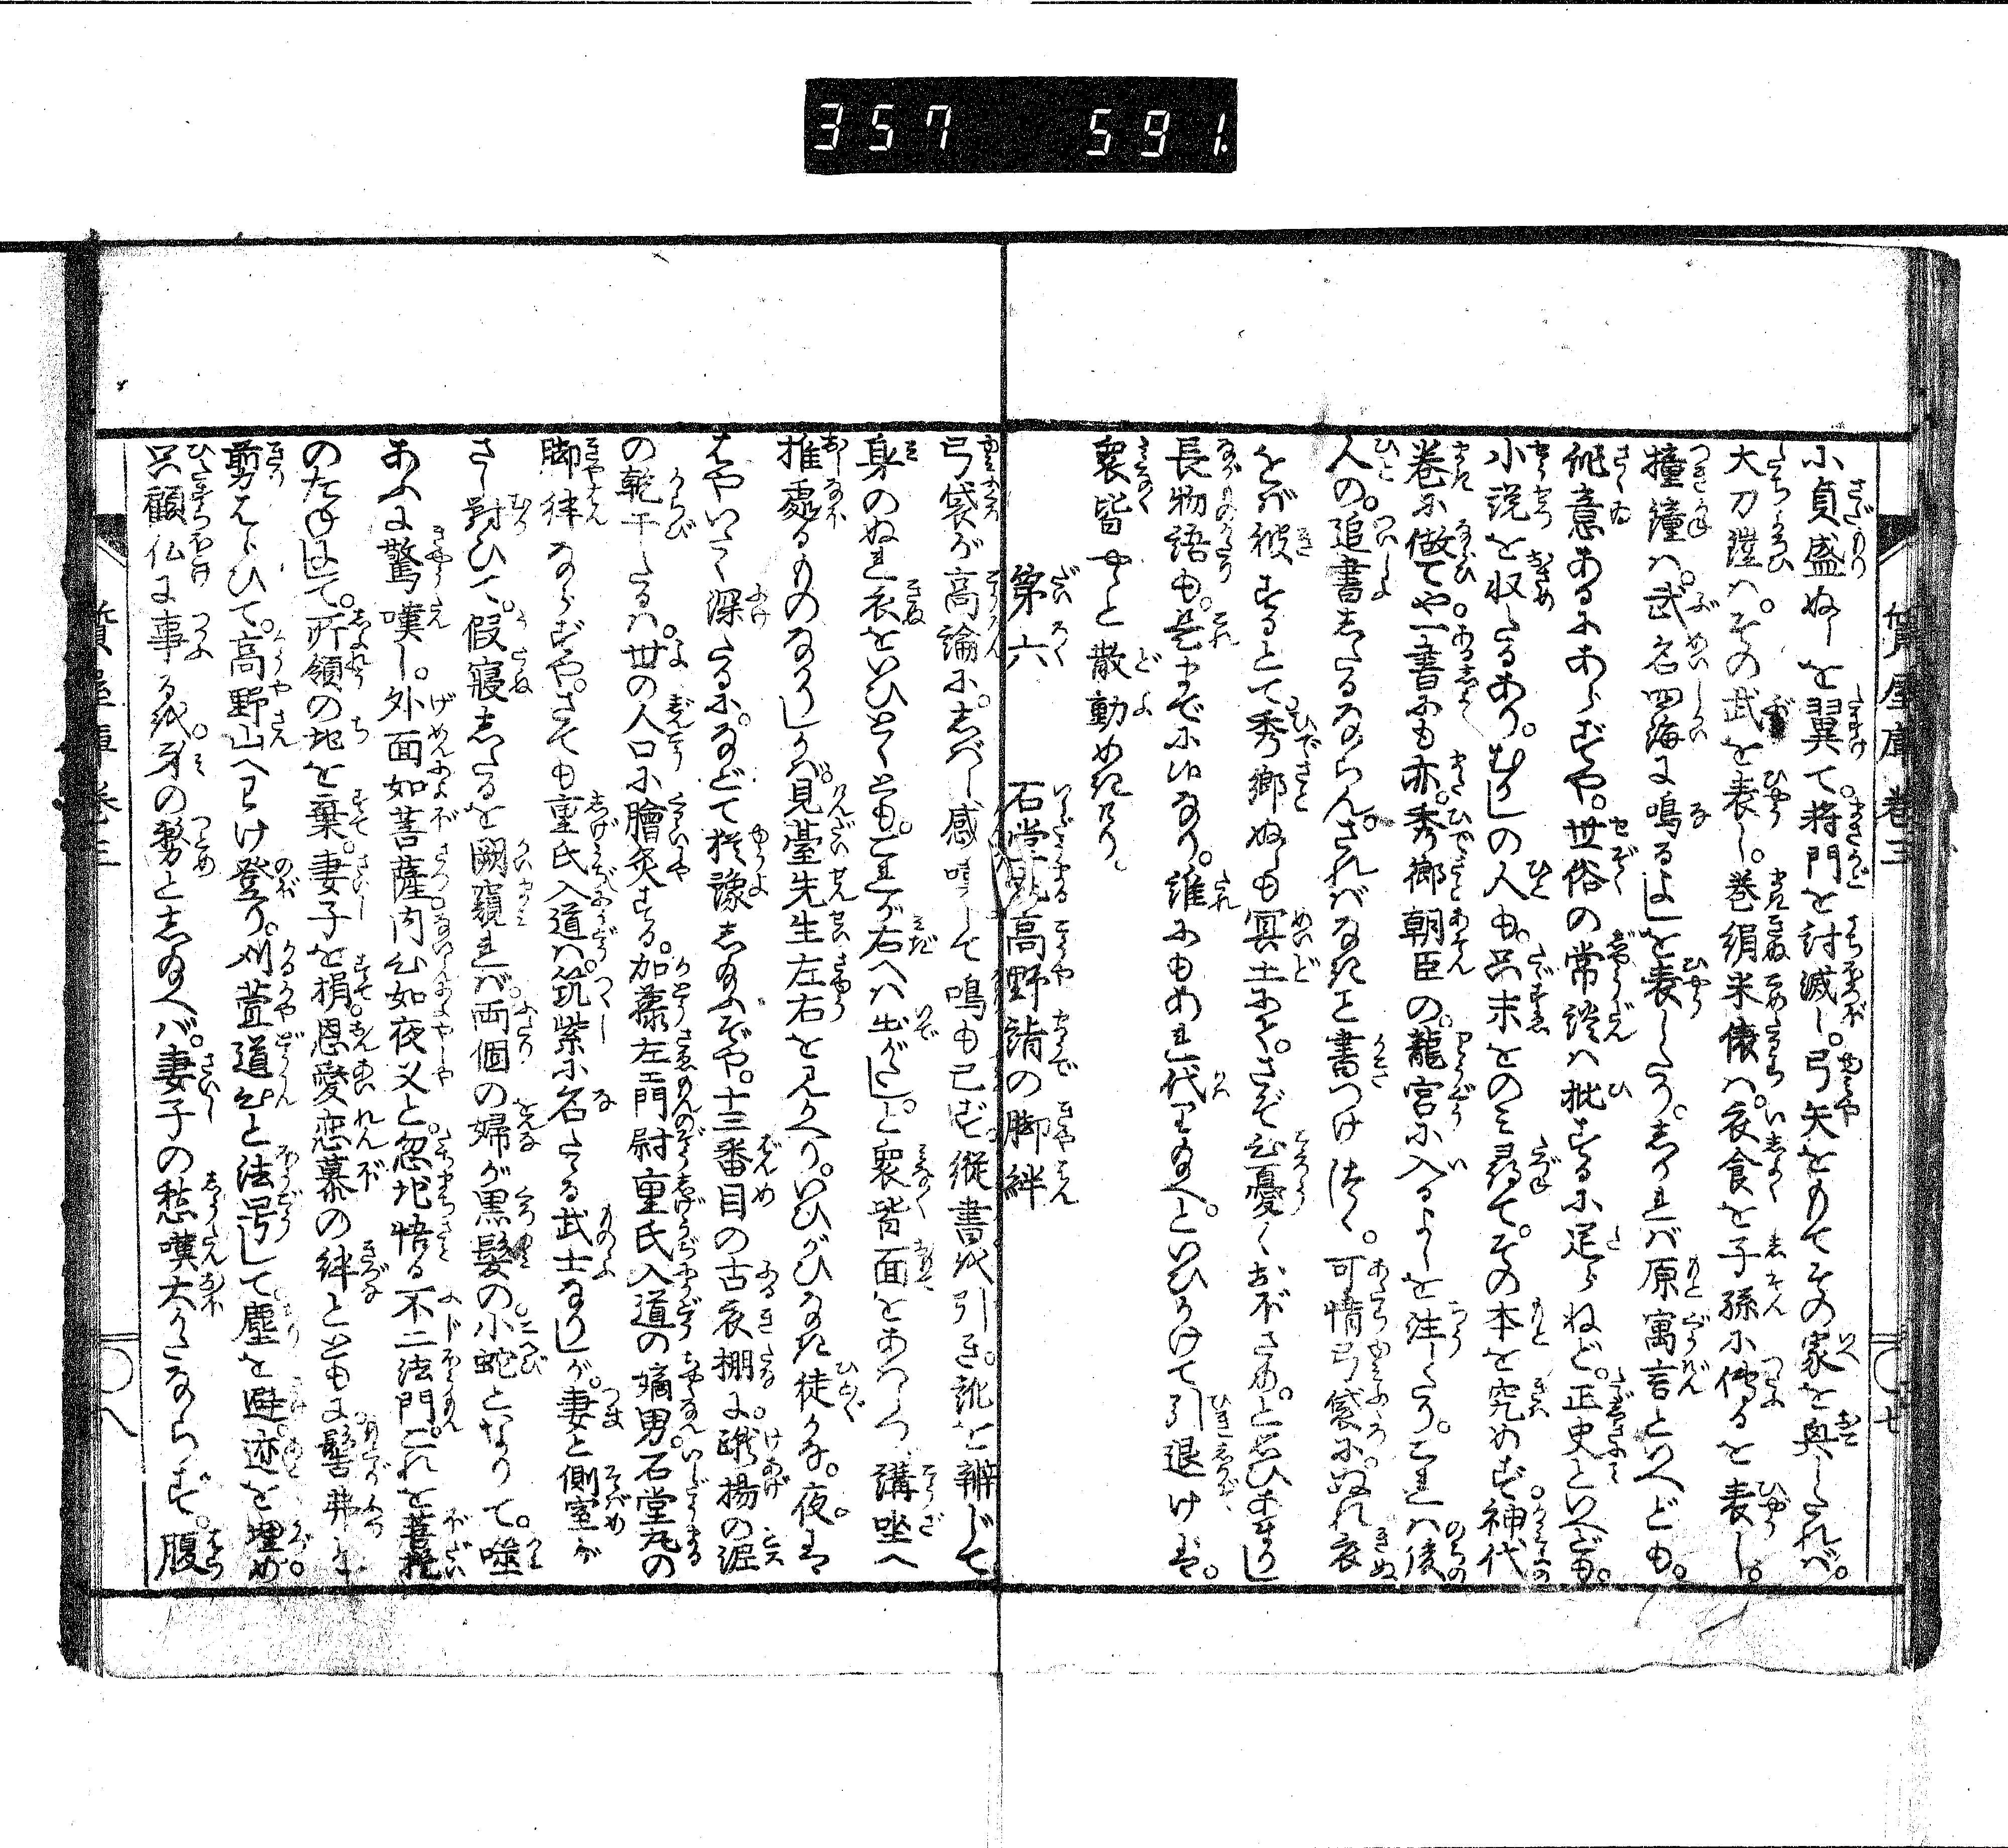 357 591.
質屋庫 巻三 ○七
小貞盛ぬしを翼て。将門を討滅し。弓矢をもてその家を興したれバ。
大刀鎧ハ。その武を表し。巻絹米俵ハ。衣食を子孫に傳るを表し。
撞鐘ハ。武名四海に鳴るよしを表したり。しかれバ原寓言といへども。
作意あるにあらずや。世俗の常談ハ批するに足らねど。正史といへども。
小説を収たるあり。むかしの人も。只末をのミ尋て。その本を究めず。神代
巻に倣てや一書にも亦。秀郷朝臣の。龍宮に入るよしを注したり。これハ後
人の。追書したるならん。さればなきこと書つけ
られて。可惜弓袋にぬれ衣
をバ被するとて秀郷ぬしも冥土にて。さぞ心憂くおぼさめ。と思ひあまりし
長物語も。是までに候なり。誰にもあれ代り給へ。といひかけて引退けバ。
衆皆どよと散動めきけり。
第六 石堂丸高野詣の脚絆
弓袋が高論に。しばし感嘆して鳴も已ず。縦書紙引き。訛を辨じて
身のぬれ衣をいひとくとも。これが右へハ出がたしと衆皆面をあはしつ、講坐へ
推處るものなかりしかバ。見臺先生左右を見かへり。いひがひなき徒かな。夜ハ
はやいたく深たるに。などて猶豫し給ふぞや。十三番目の古衣棚に。蹴揚の泥
の乾干たるハ。世の人口に膾炙する。加藤左衛門尉重氏入道の嫡男。石堂丸の
脚絆ならずや。さても重氏入道ハ。筑紫に名たる武士なりしが。妻と側室が
さし對ひて。假寝したるを闕窺れバ。両個の婦が黒髪の。小蛇となりて。噬
あふに驚嘆し。外面如菩薩内心如夜叉と。忽地悟る不二法門。これを菩提
のたねにして。所領の地を棄。妻子を捐。恩愛恋慕の絆とともに髻弗と
剪はらひて。高野山へわけ登り。刈萱道心と法号して塵を避。迹を埋め。
只顧仏に事るを身の勤と し給へバ。妻子の愁嘆大かたならず。腹
質屋庫 巻三 ○八